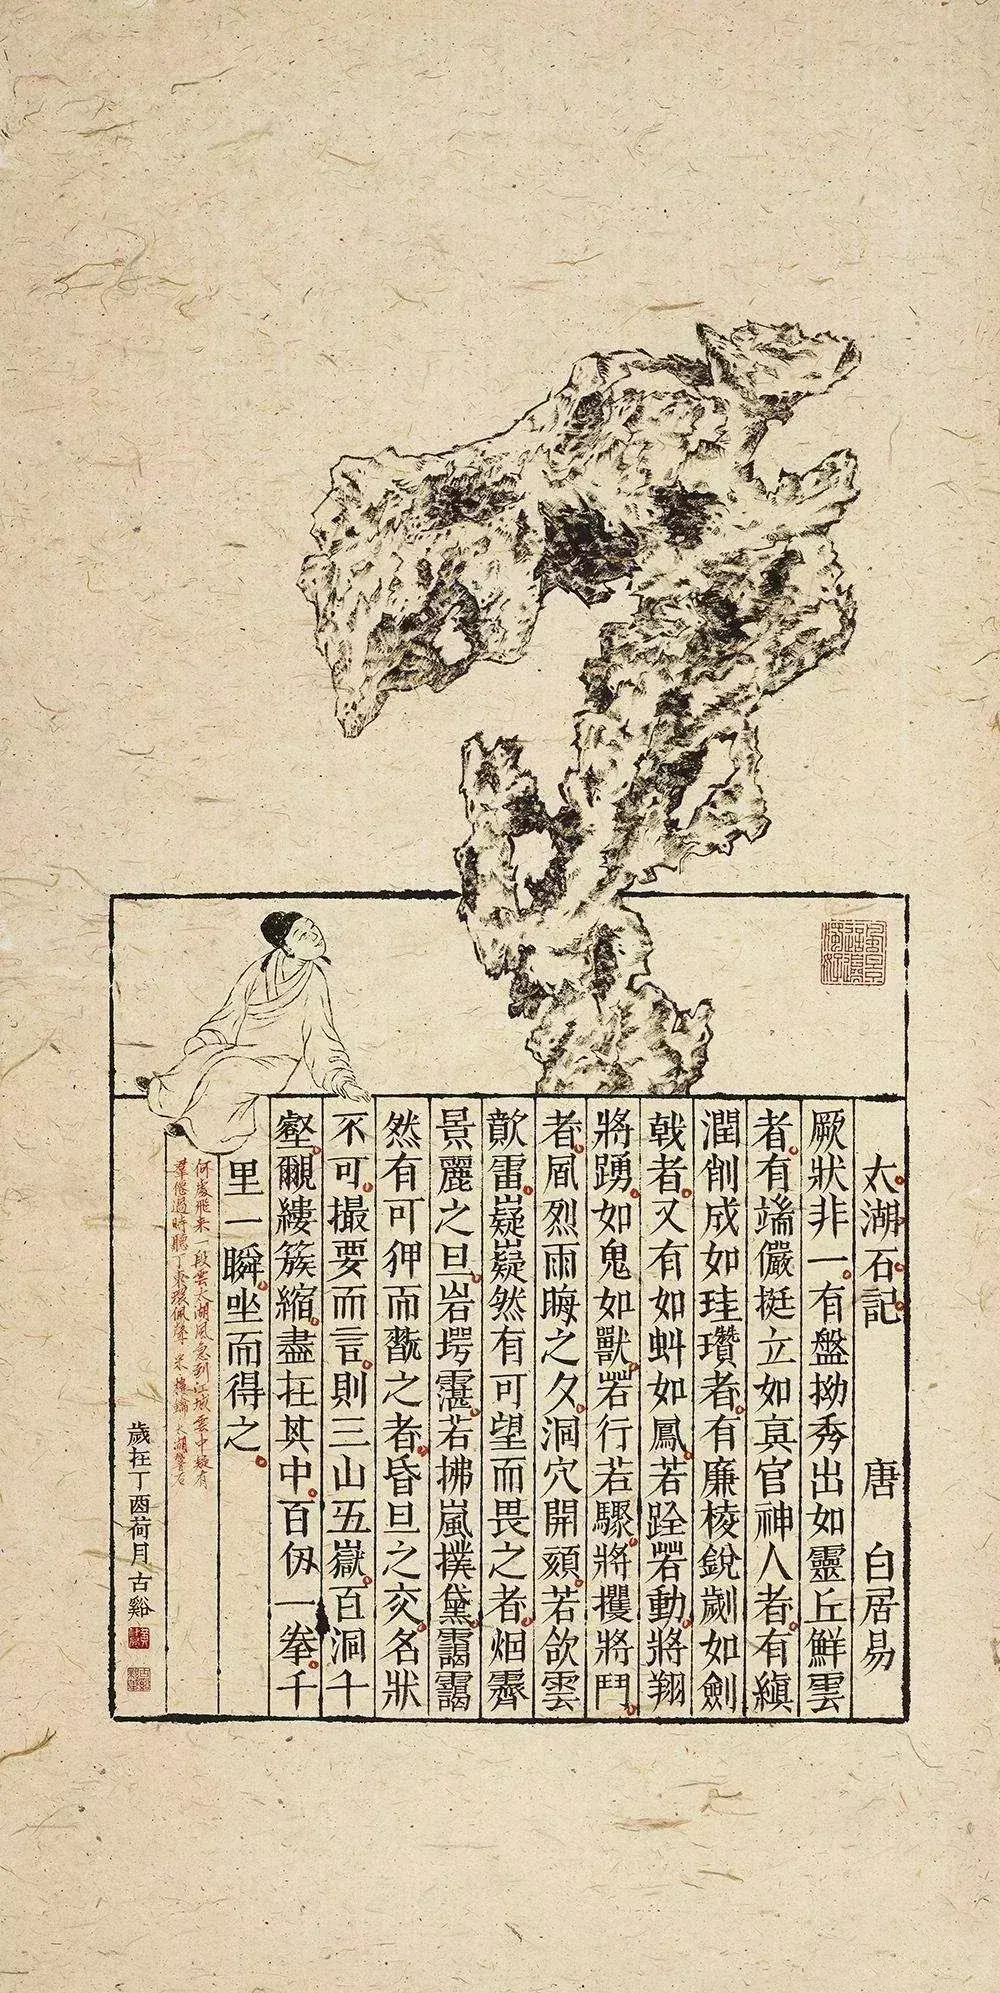 太湖石記 唐 白居易
厥狀非一有盤拗秀出如靈丘鮮雲
者有端儼挺立如真官神人者有縝
潤削成如珪瓚者有廉棱銳劌如劍
戟者又有如虯如鳳若跧若動將翔
將踴如鬼如獸若行若驟將攫將鬥
者風烈雨晦之夕洞穴開頦若欲雲
歕雷嶷嶷然有可望而畏之者烟霽
景麗之旦岩堮霮若拂嵐撲黛靄靄
然有可狎而翫之者昏旦之交名狀
不可撮要而言則三山五嶽百洞千
壑覼縷簇縮盡在其中百仞一拳千
里一瞬坐而得之
何處飛來一段雲太湖風急到江城雲中疑有
羣僊過時聽丁東環佩聲
歲在丁酉荷月古谿